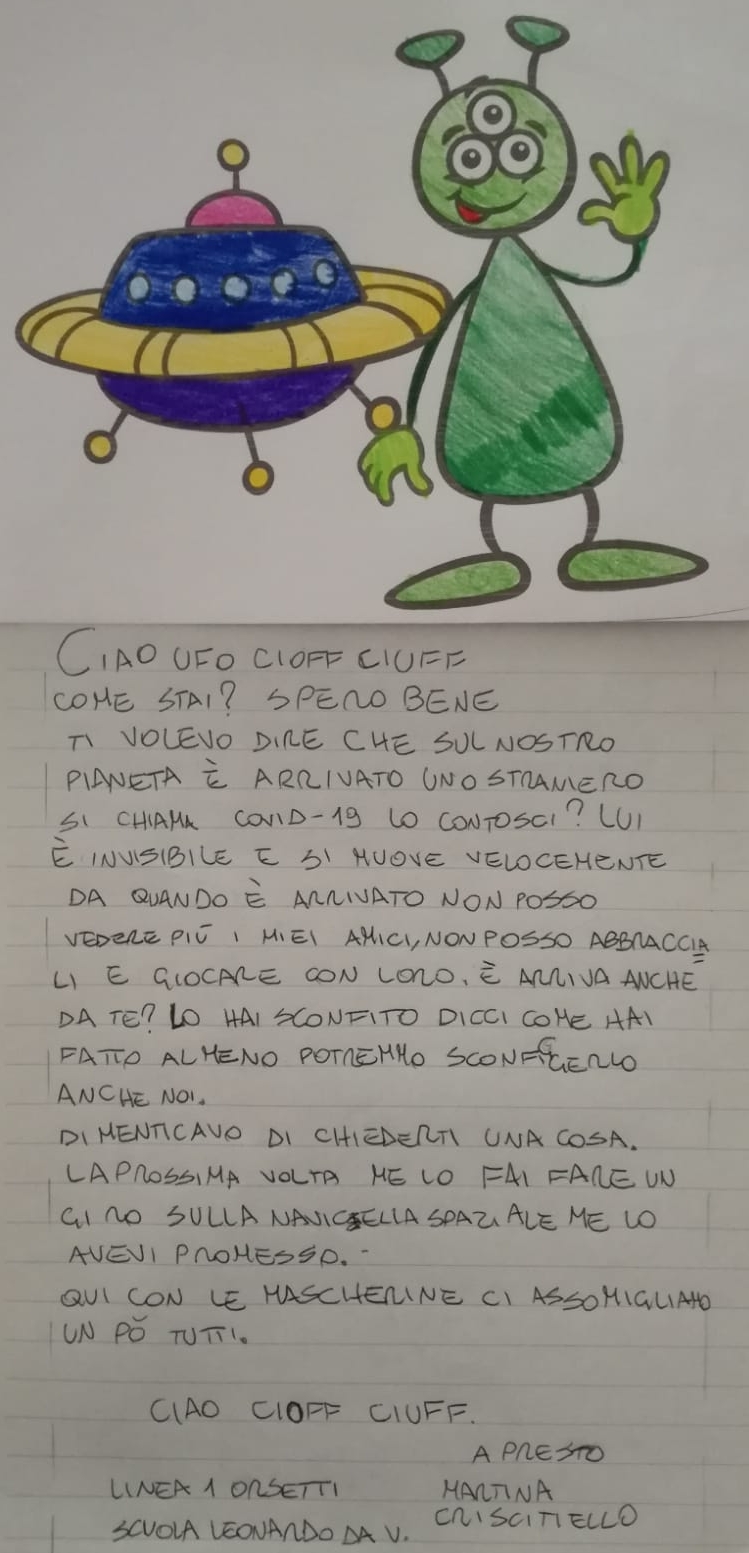 CIAO UFO CIOFF CIUFF
COME STAI? SPERO BENE
TI VOLEVO DIRE CHE SUL NOSTRO
PIANETA È ARRIVATO UNO STRANIERO
SI CHIAMA COVID-19 LO CONTOSCI? LUI
È INVISIBILE E SI MUOVE VELOCEMENTE
DA QUANDO È ARRIVATO NON POSSO
VEDERE PIÙ I MIEI AMICI, NON POSSO ABBRACCIA=
LI E GIOCARE CON LORO. È ARRIVA ANCHE
DA TE? LO HAI SCONFITO DICCI COME HAI
FATTO ALMENO POTREMMO SCONFIGGERLO
ANCHE NOI.
DIMENTICAVO DI CHIEDERTI UNA COSA.
LA PROSSIMA VOLTA ME LO FAI FARE UN
GIRO SULLA NAVICELLA SPAZIALE ME LO
AVEVI PROMESSO.-
QUI CON LE MASCHERINE CI ASSOMIGLIAMO
UN PÒ TUTTI.
CIAO CIOFF CIUFF.
A PRESTO
LINEA 1 ORSETTI MARTINA
SCUOLA LEONARDO DA V. CRISCITIELLO